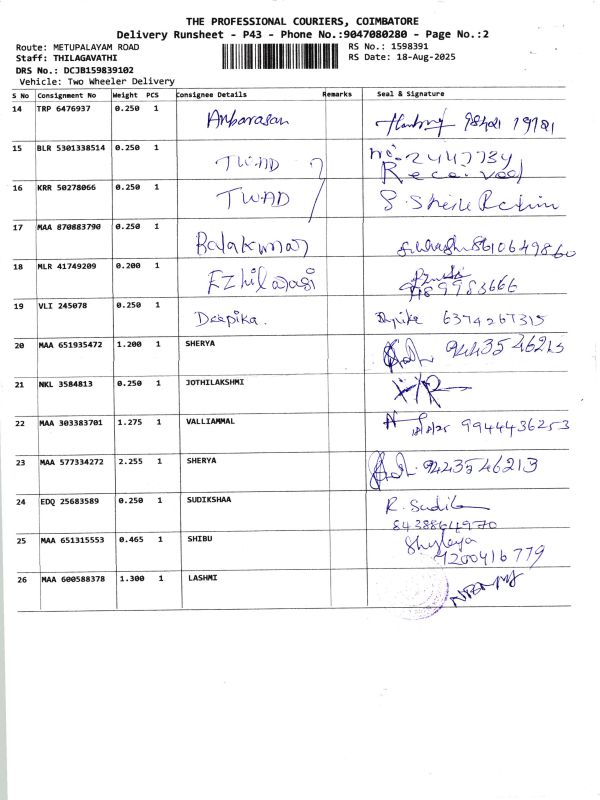 THE PROFESSIONAL COURIERS, COIMBATORE
Delivery Runsheet - P43 - Phone No.:9047080280 - Page No.:2
Route: METUPALAYAM ROAD RS No.: 1598391
Staff: THILAGAVATHI RS Date: 18-Aug-2025
DRS No.: DCJB159839102
Vehicle: Two Wheeler Delivery
S No Consignment No Weight PCS Consignee Details Remarks Seal & Signature
14 TRP 6476937 0.250 1 Anbarasan
15 BLR 5301338514 0.250 1 TWAD Received
16 KRR 50278066 0.250 1 TWAD
17 MAA 870883790 0.250 1 Balakumar 8610649860
18 MLR 41749209 0.200 1 Ezhilarasi 9489983666
19 VLI 245078 0.250 1 Deepika. 6374267315
20 MAA 651935472 1.200 1 SHERYA
21 NKL 3584813 0.250 1 JOTHILAKSHMI
22 MAA 303383701 1.275 1 VALLIAMMAL 18/8/25 9944436253
23 MAA 577334272 2.255 1 SHERYA 9443546213
24 EDQ 25683589 0.250 1 SUDIKSHAA R. Sudik
25 MAA 651315553 0.465 1 SHIBU 9200416779
26 MAA 600588378 1.300 1 LASHMI